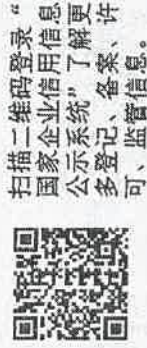 扫描二维码登录“
国家企业信用信息
公示系统”了解更
多登记、备案、许
可、监管信息。